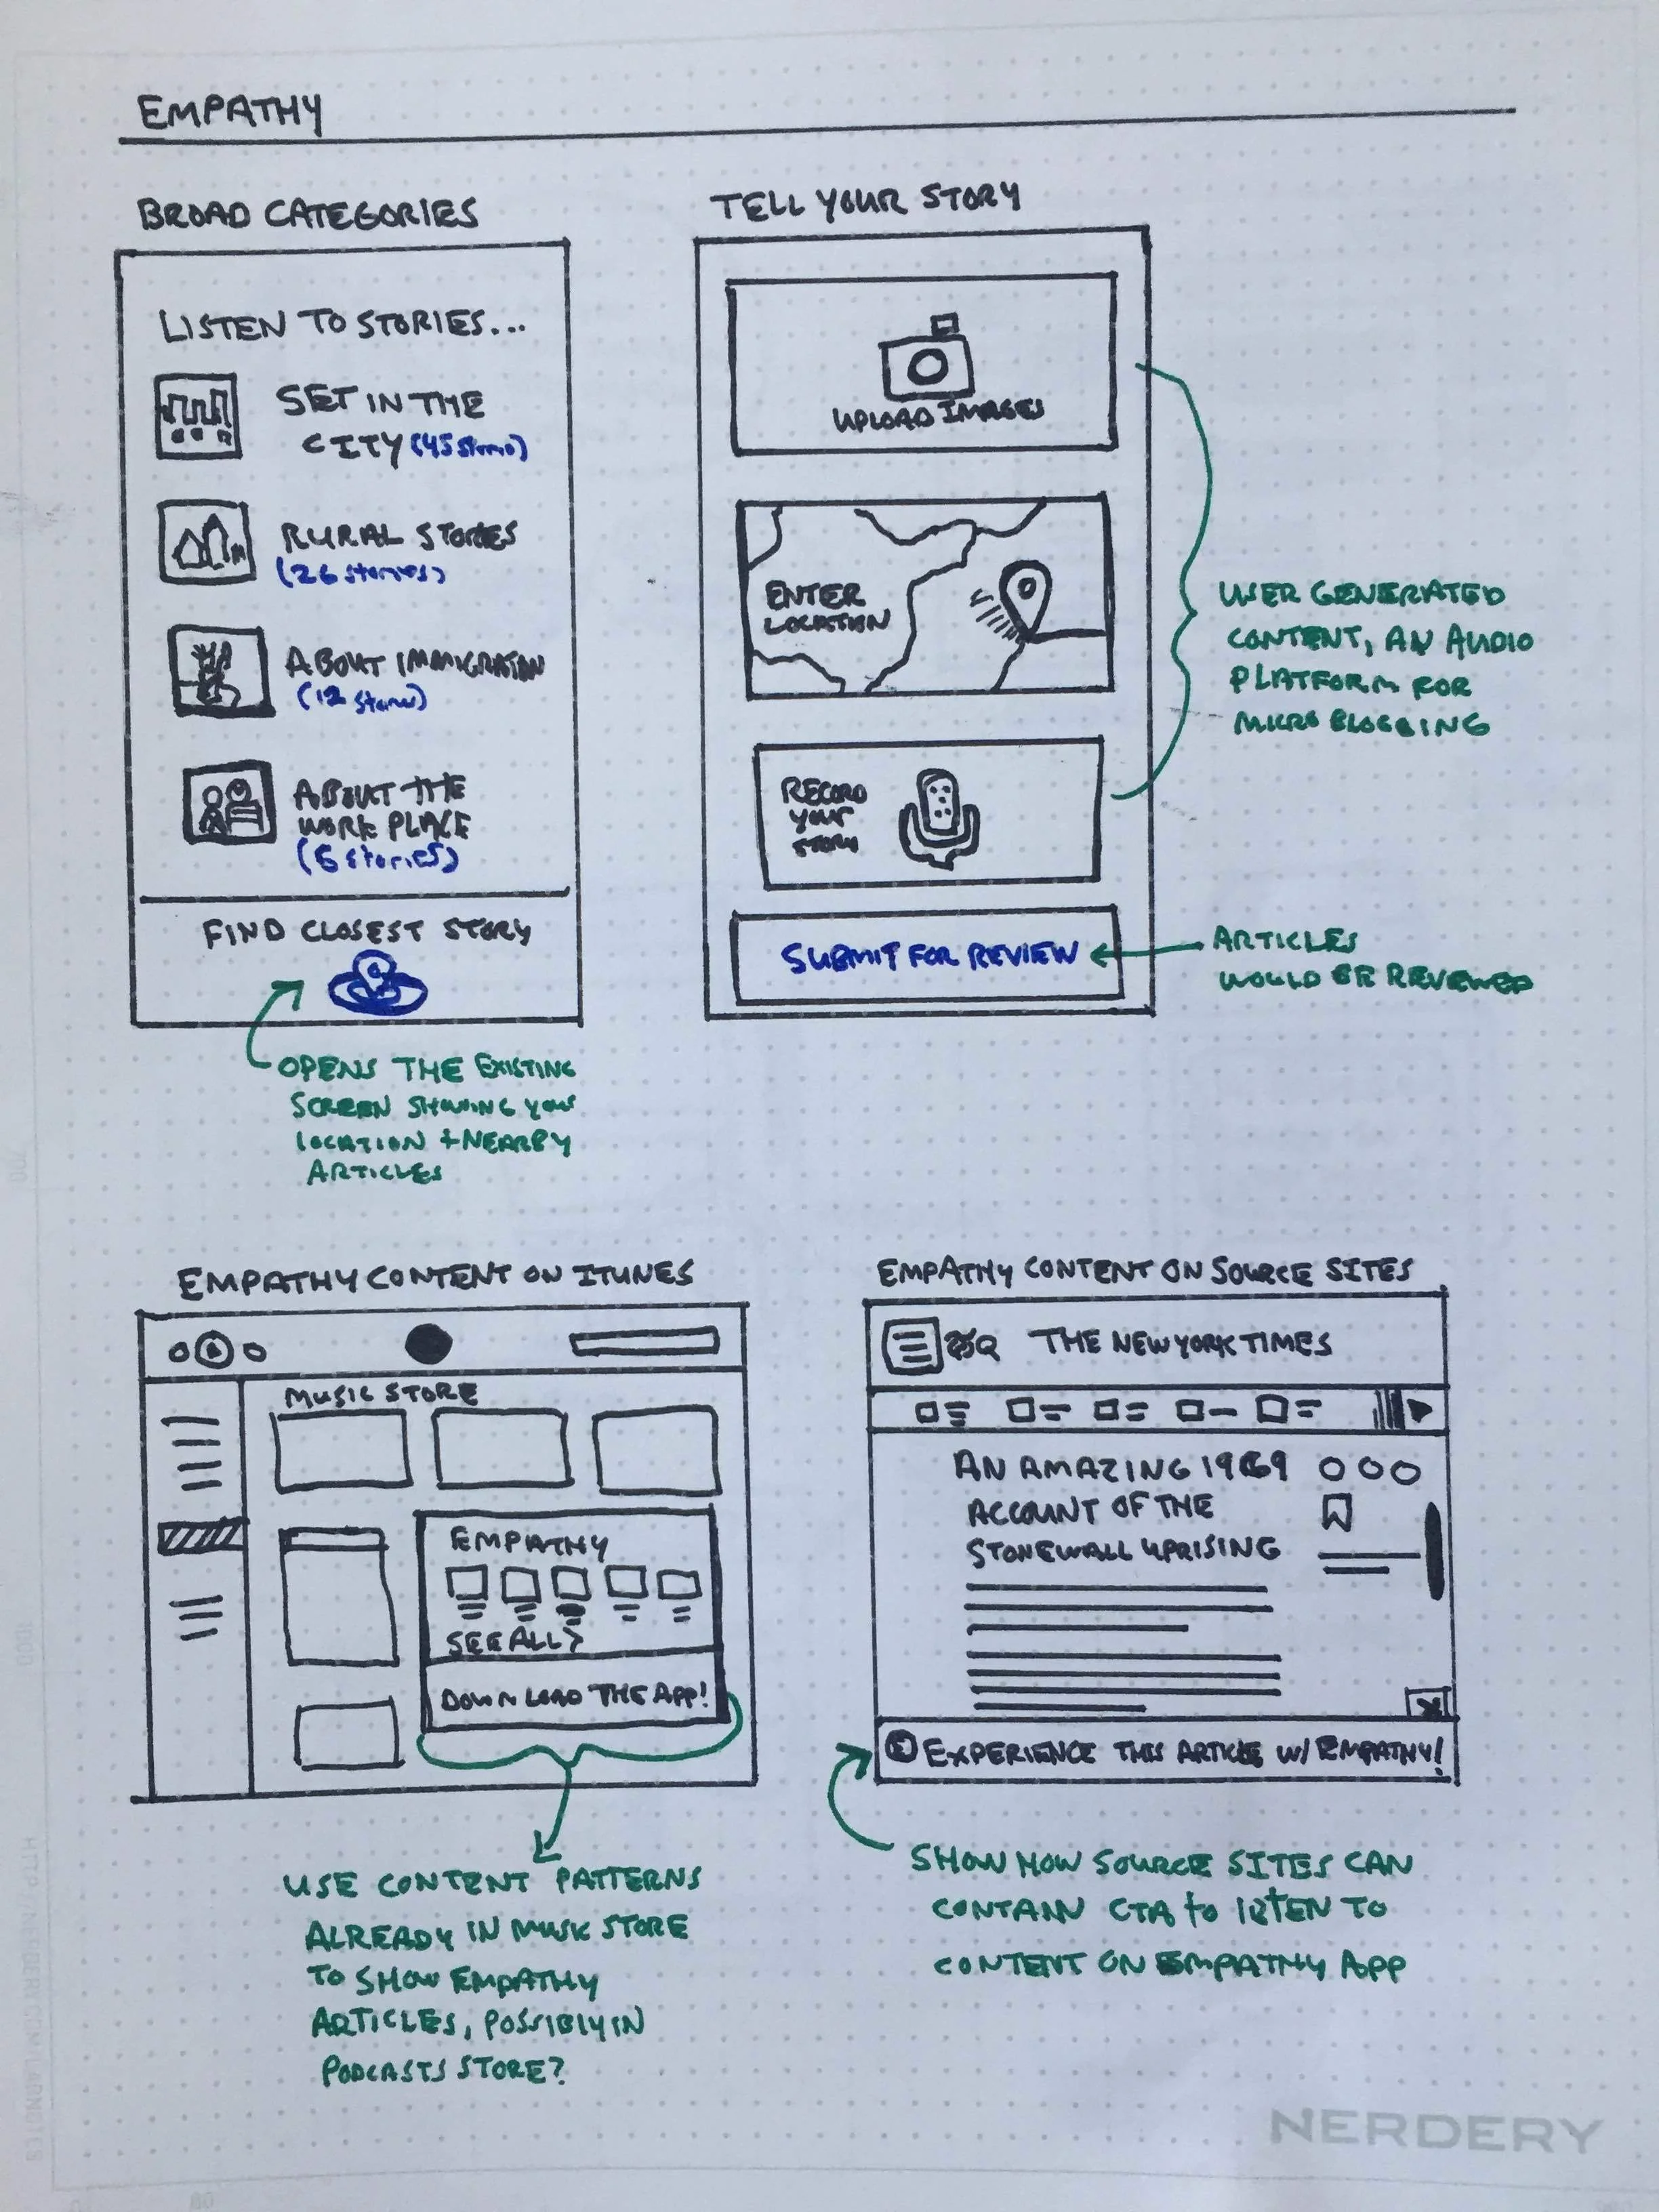 EMPATHY
BROAD CATEGORIES
LISTEN TO STORIES...
SET IN THE
CITY (45 Stories)
RURAL STORIES
(26 stories)
ABOUT IMMIGRATION
(12 stories)
ABOUT THE
WORK PLACE
(6 stories)
FIND CLOSEST STORY
OPENS THE EXISTING
SCREEN SHOWING YOUR
LOCATION + NEARBY
ARTICLES
TELL YOUR STORY
UPLOAD IMAGES
ENTER
LOCATION
RECORD
YOUR
STORY
SUBMIT FOR REVIEW
USER GENERATED
CONTENT, AN AUDIO
PLATFORM FOR
MICRO BLOGGING
ARTICLES
WOULD BE REVIEWED
EMPATHY CONTENT ON ITUNES
MUSIC STORE
EMPATHY
SEE ALL >
DOWNLOAD THE APP!
USE CONTENT PATTERNS
ALREADY IN MUSIC STORE
TO SHOW EMPATHY
ARTICLES, POSSIBLY IN
PODCASTS STORE?
EMPATHY CONTENT ON SOURCE SITES
THE NEW YORK TIMES
AN AMAZING 1969
ACCOUNT OF THE
STONEWALL UPRISING
X
E EXPERIENCE THIS ARTICLE W/ EMPATHY!
SHOW HOW SOURCE SITES CAN
CONTAIN CTA to LISTEN TO
CONTENT ON EMPATHY APP
NERDERY
HTTP://NERDERY.COM/LABNOTES